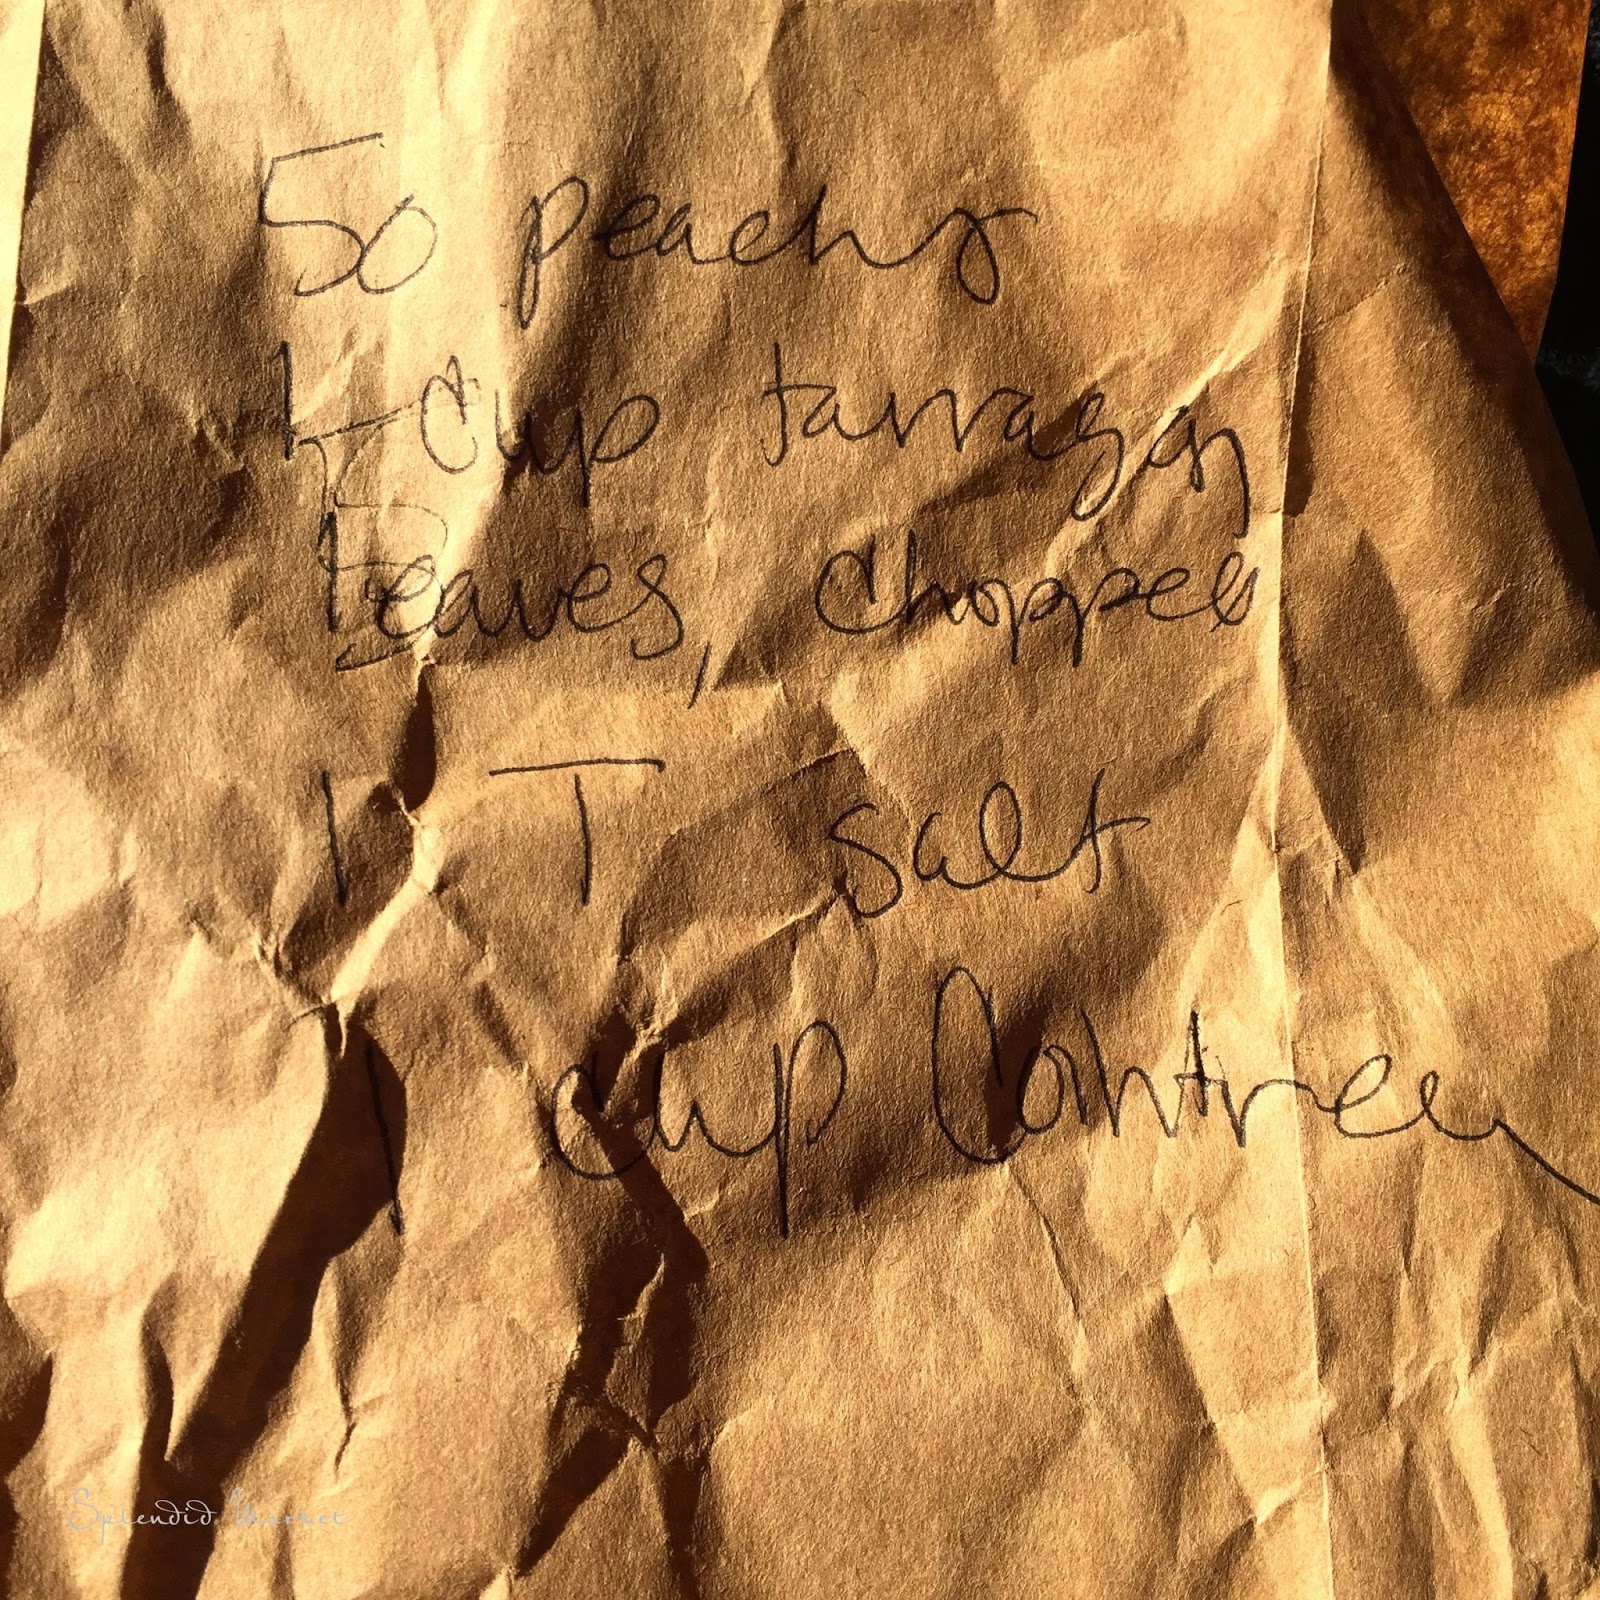 50 peaches
1/2 cup tarragon
leaves, chopped
1 T salt
1 cup Cointreau
Splendid Market